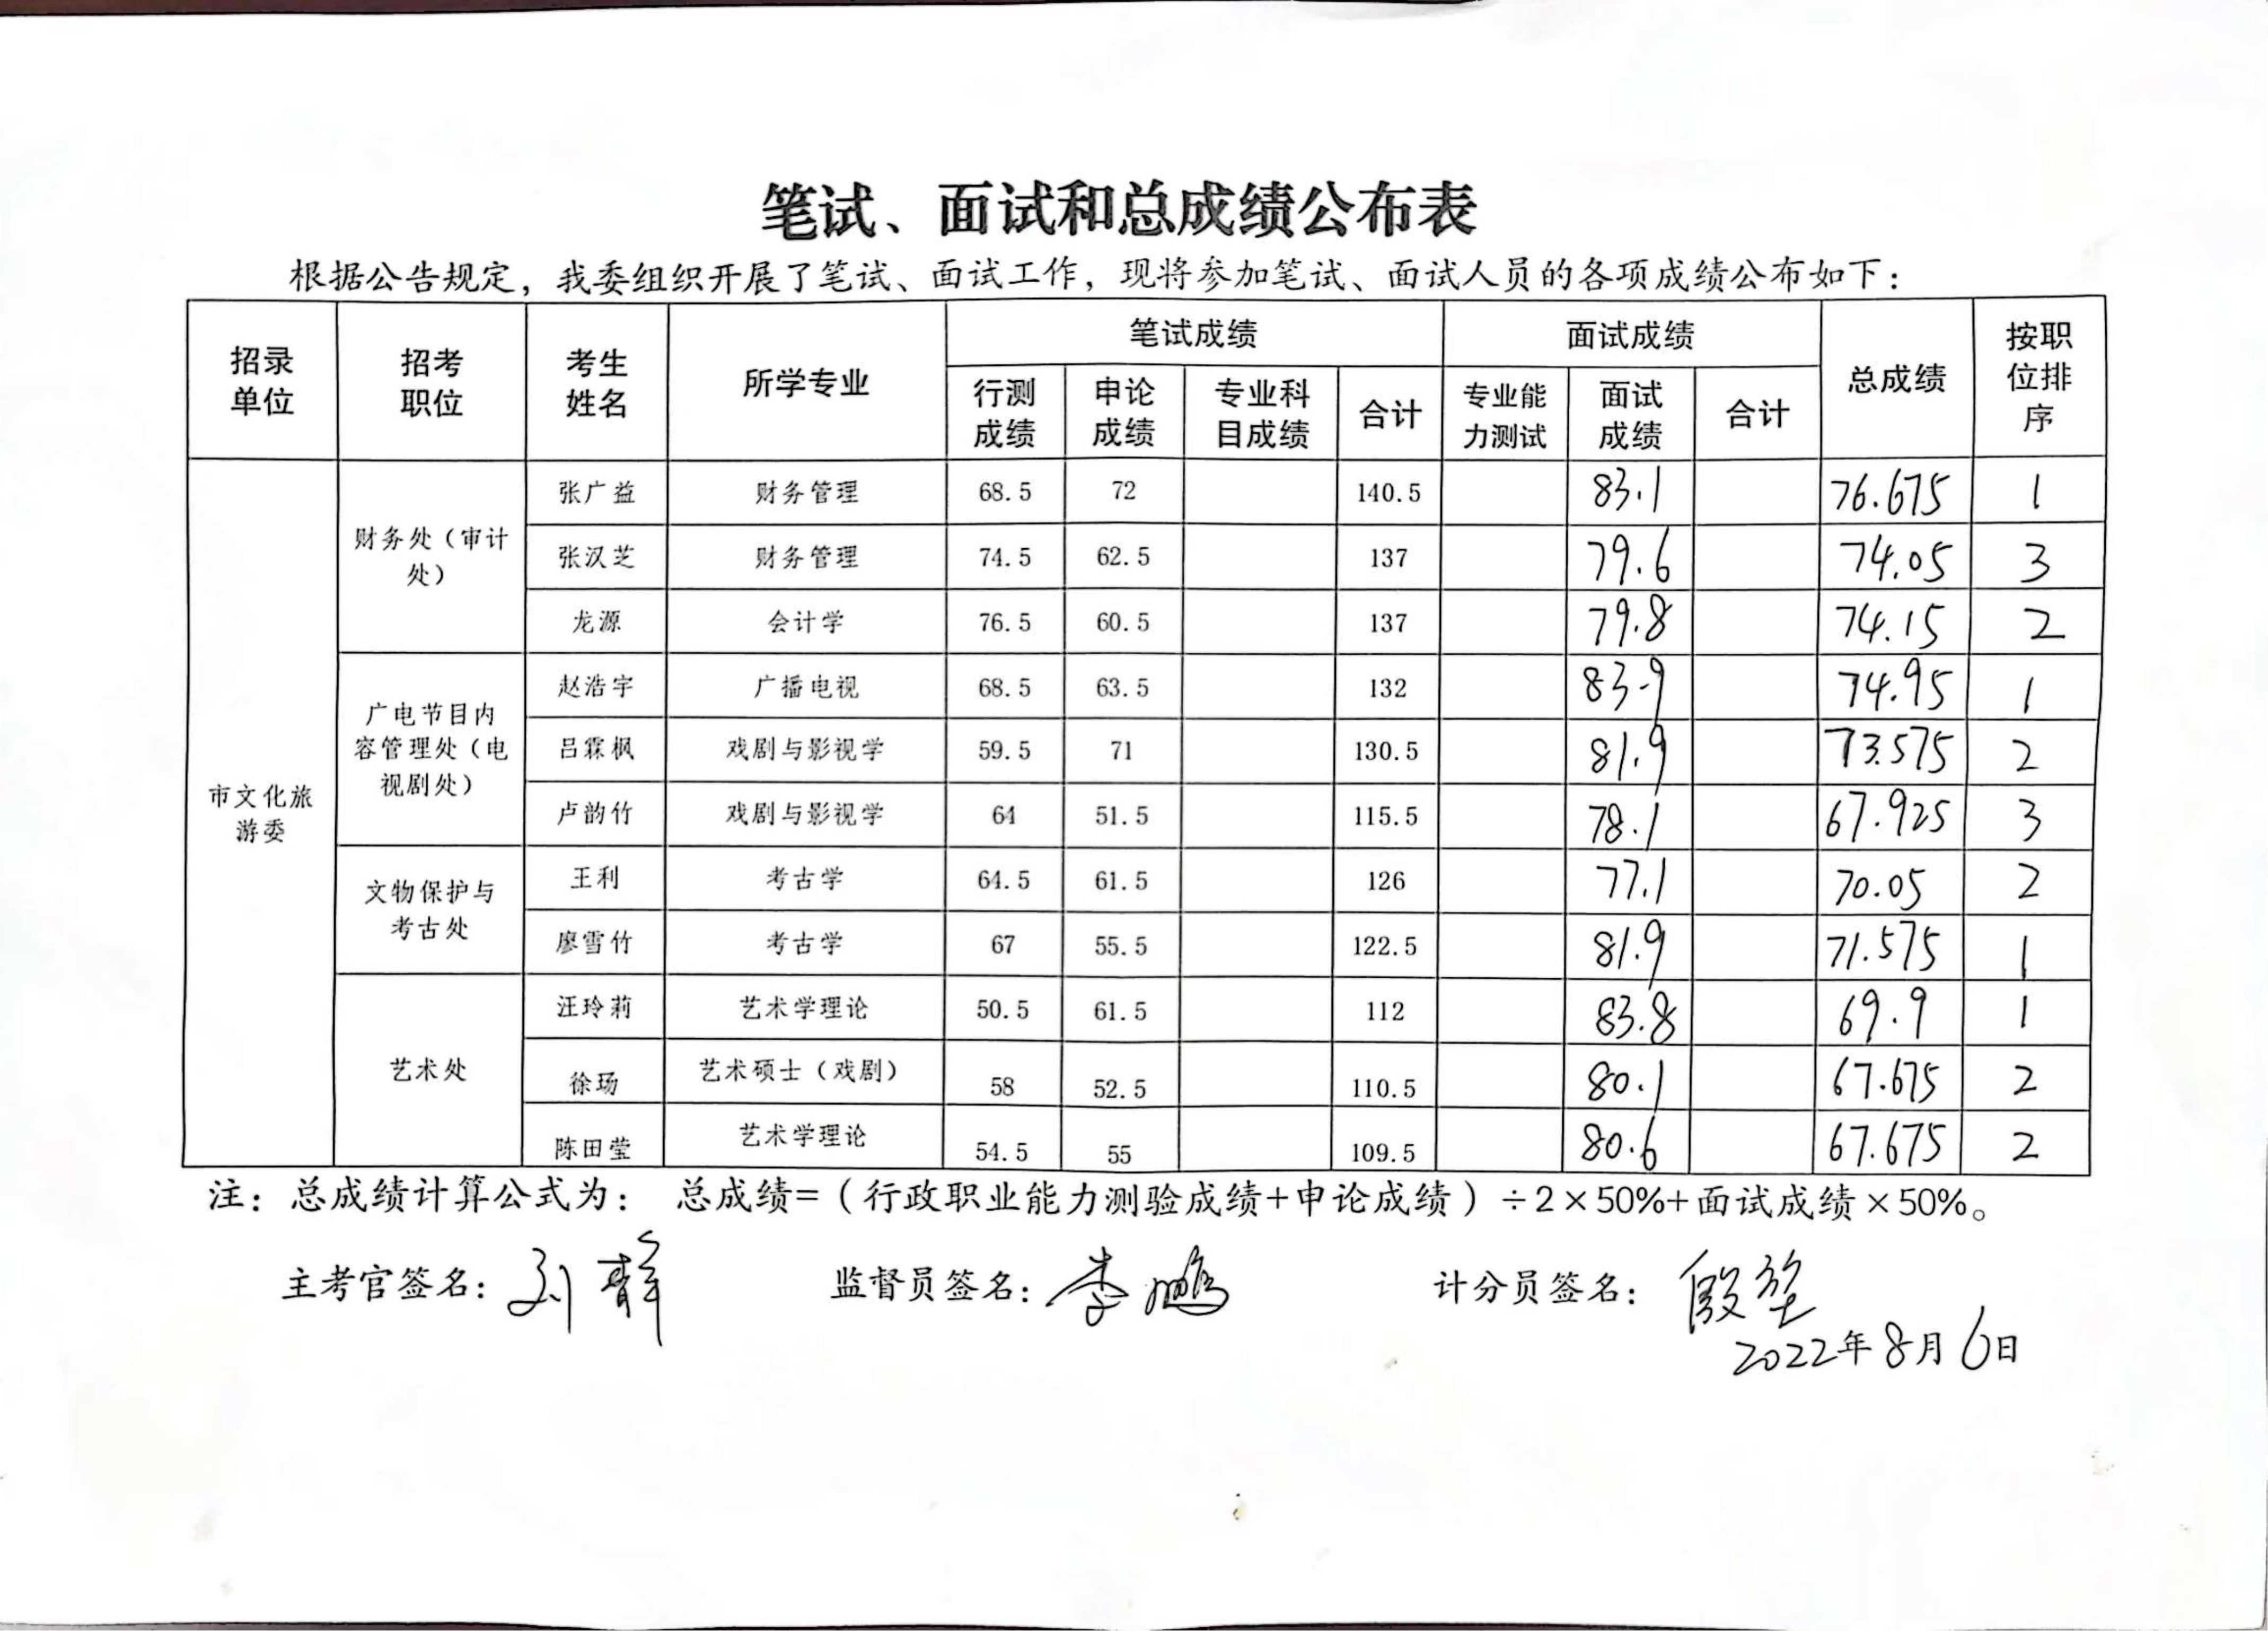 笔试、面试和总成绩公布表
根据公告规定，我委组织开展了笔试、面试工作，现将参加笔试、面试人员的各项成绩公布如下：
招录单位 招考职位 考生姓名 所学专业 笔试成绩 面试成绩 总成绩 按职位排序
行测成绩 申论成绩 专业科目成绩 合计 专业能力测试 面试成绩 合计
市文化旅游委
财务处（审计处）
张广益 财务管理 68.5 72 140.5 83.1 76.675 1
张汉芝 财务管理 74.5 62.5 137 79.6 74.05 3
龙源 会计学 76.5 60.5 137 79.8 74.15 2
广电节目内容管理处（电视剧处）
赵浩宇 广播电视 68.5 63.5 132 83.9 74.95 1
吕霖枫 戏剧与影视学 59.5 71 130.5 81.9 73.575 2
卢韵竹 戏剧与影视学 64 51.5 115.5 78.1 67.925 3
文物保护与考古处
王利 考古学 64.5 61.5 126 77.1 70.05 2
廖雪竹 考古学 67 55.5 122.5 81.9 71.575 1
艺术处
汪玲莉 艺术学理论 50.5 61.5 112 83.8 69.9 1
徐玚 艺术硕士（戏剧） 58 52.5 110.5 80.1 67.675 2
陈田莹 艺术学理论 54.5 55 109.5 80.6 67.675 2
注：总成绩计算公式为： 总成绩=（行政职业能力测验成绩+申论成绩）÷2×50%+面试成绩×50%。
主考官签名：刘静 监督员签名：李鹏 计分员签名：殷
2022年8月6日